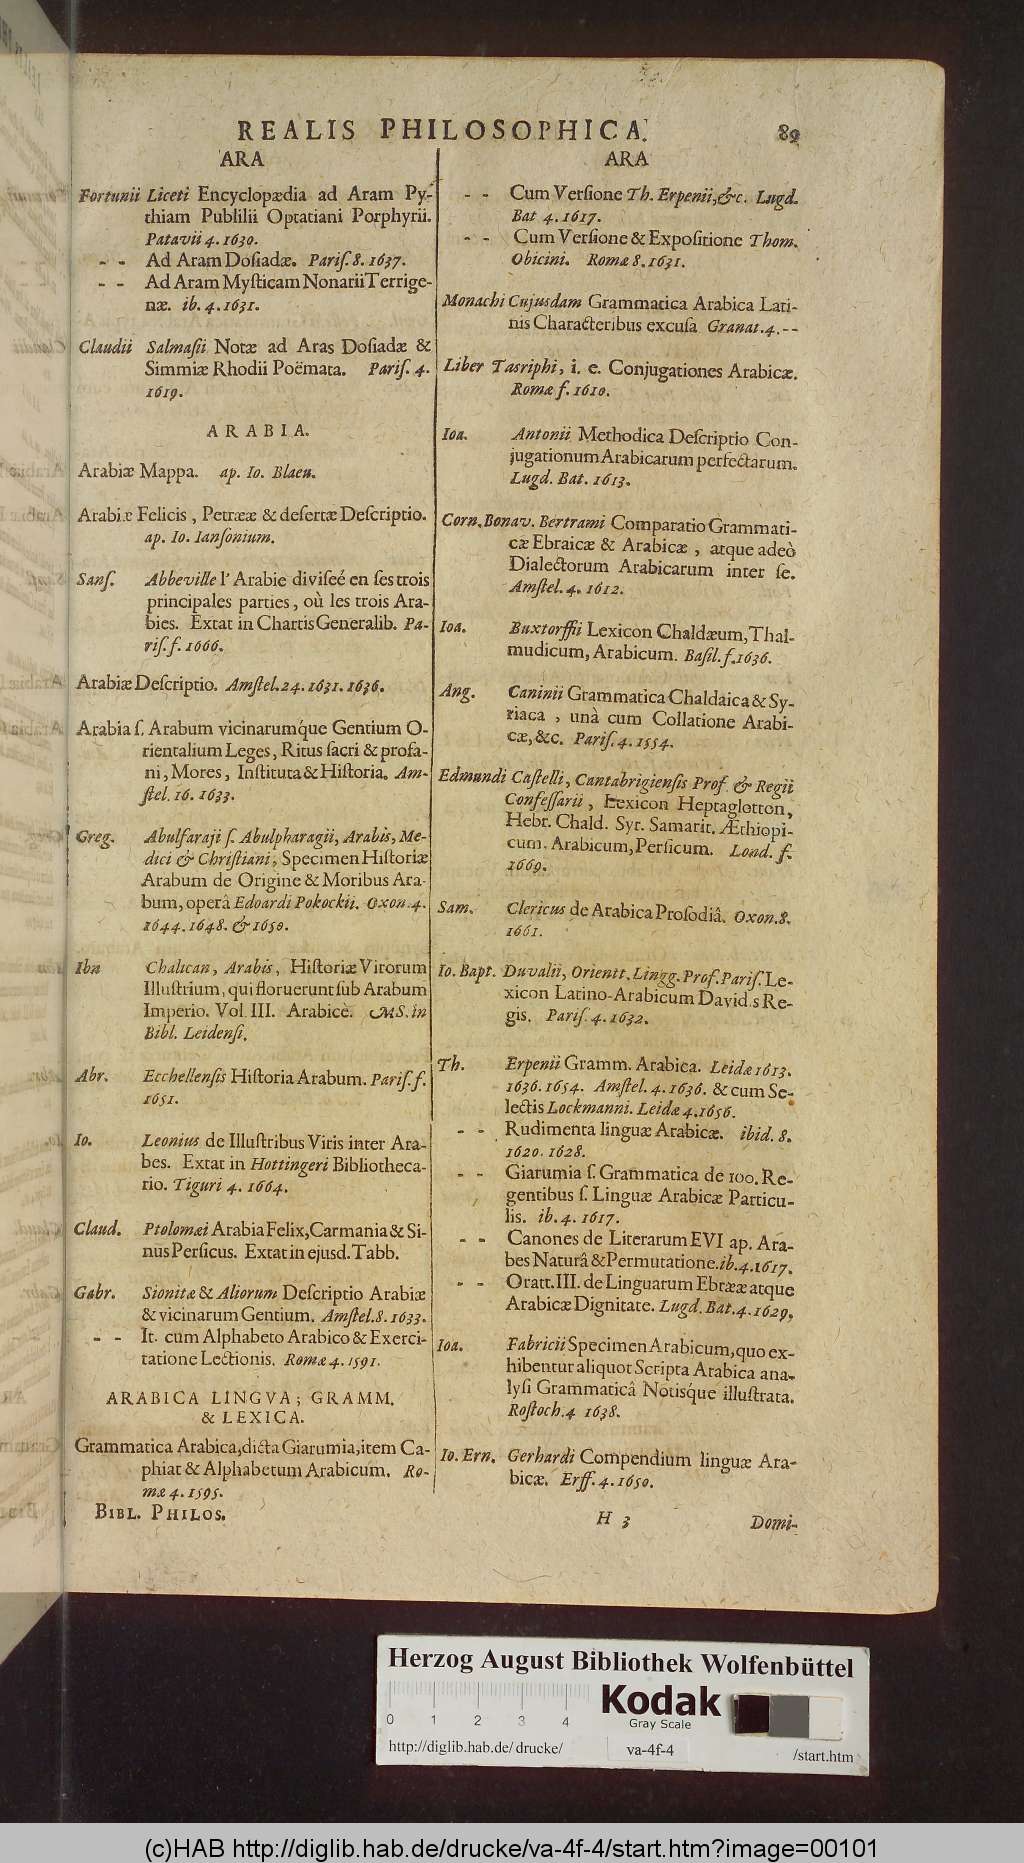 REALIS PHILOSOPHICA. 89
ARA
Fortunii Liceti Encyclopædia ad Aram Py-
thiam Publilii Optatiani Porphyrii.
Patavii 4. 1630.
- - Ad Aram Dosiadæ. Paris. 8. 1637.
- - Ad Aram Mysticam Nonarii Terrige-
næ. ib. 4. 1631.
Claudii Salmasii Notæ ad Aras Dosiadæ &
Simmiæ Rhodii Poëmata. Paris. 4.
1619.
ARABIA.
Arabiæ Mappa. ap. Io. Blaeu.
Arabiæ Felicis, Petrææ & desertæ Descriptio.
ap. Io. Iansonium.
Sans. Abbeville l' Arabie diviseé en ses trois
principales parties, où les trois Ara-
bies. Extat in Chartis Generalib. Pa-
ris. f. 1666.
Arabiæ Descriptio. Amstel. 24. 1631. 1636.
Arabia s. Arabum vicinarumq́ue Gentium O-
rientalium Leges, Ritus sacri & profa-
ni, Mores, Instituta & Historia. Am-
stel. 16. 1633.
Greg. Abulfaraji s. Abulpharagii, Arabis, Me-
dici & Christiani, Specimen Historiæ
Arabum de Origine & Moribus Ara-
bum, operâ Edoardi Pokockii. Oxon. 4.
1644. 1648. & 1650.
Ibn Chalican, Arabis, Historiæ Virorum
Illustrium, qui floruerunt sub Arabum
Imperio. Vol III. Arabicè. MS. in
Bibl. Leidensi.
Abr. Ecchellensis Historia Arabum. Paris. f.
1651.
Io. Leonius de Illustribus Viris inter Ara-
bes. Extat in Hottingeri Bibliotheca-
rio. Tiguri 4. 1664.
Claud. Ptolomæi Arabia Felix, Carmania & Si-
nus Persicus. Extat in ejusd. Tabb.
Gabr. Sionitæ & Aliorum Descriptio Arabiæ
& vicinarum Gentium. Amstel. 8. 1633.
- - It. cum Alphabeto Arabico & Exerci-
tatione Lectionis. Romæ 4. 1591.
ARABICA LINGVA; GRAMM.
& LEXICA.
Grammatica Arabica, dicta Giarumia, item Ca-
phiat & Alphabetum Arabicum. Ro-
mæ 4. 1595.
BIBL. PHILOS.
ARA
- - Cum Versione Th. Erpenii, &c. Lugd.
Bat 4. 1617.
- - Cum Versione & Expositione Thom.
Obicini. Romæ 8. 1631.
Monachi Cujusdam Grammatica Arabica Lati-
nis Characteribus excusa Granat. 4. --
Liber Tasriphi, i. e. Conjugationes Arabicæ.
Romæ f. 1610.
Ioa. Antonii Methodica Descriptio Con-
jugationum Arabicarum perfectarum.
Lugd. Bat. 1613.
Corn. Bonav. Bertrami Comparatio Grammati-
cæ Ebraicæ & Arabicæ, atque adeò
Dialectorum Arabicarum inter se.
Amstel. 4. 1612.
Ioa. Buxtorffii Lexicon Chaldæum, Thal-
mudicum, Arabicum. Basil. f. 1636.
Ang. Caninii Grammatica Chaldaica & Sy-
riaca, unà cum Collatione Arabi-
cæ, &c. Paris. 4. 1554.
Edmundi Castelli, Cantabrigiensis Prof. & Regii
Confessarii, Lexicon Heptaglotton,
Hebr. Chald. Syr. Samarit. Æthiopi-
cum. Arabicum, Persicum. Lond. f.
1669.
Sam. Clericus de Arabica Prosodiâ. Oxon. 8.
1661.
Io. Bapt. Duvalii, Orient. Lingg. Prof. Paris. Le-
xicon Latino-Arabicum Davidis Re-
gis. Paris. 4. 1632.
Th. Erpenii Gramm. Arabica. Leidæ 1613.
1636. 1654. Amstel. 4. 1636. & cum Se-
lectis Lockmanni. Leidæ 4. 1656.
- - Rudimenta linguæ Arabicæ. ibid. 8.
1620. 1628.
- - Giarumia s. Grammatica de 100. Re-
gentibus s. Linguæ Arabicæ Particu-
lis. ib. 4. 1617.
- - Canones de Literarum EVI ap. Ara-
bes Naturâ & Permutatione. ib. 4. 1617.
- - Oratt. III. de Linguarum Ebrææ atque
Arabicæ Dignitate. Lugd. Bat. 4. 1629.
Ioa. Fabricii Specimen Arabicum, quo ex-
hibentur aliquot Scripta Arabica ana-
lysi Grammaticâ Notisq́ue illustrata.
Rostoch. 4 1638.
Io. Ern. Gerhardi Compendium linguæ Ara-
bicæ. Erff. 4. 1650.
H 3 Domi-
Herzog August Bibliothek Wolfenbüttel
0 1 2 3 4
Kodak
Gray Scale
http://diglib.hab.de/drucke/ va-4f-4 /start.htm
(c)HAB http://diglib.hab.de/drucke/va-4f-4/start.htm?image=00101